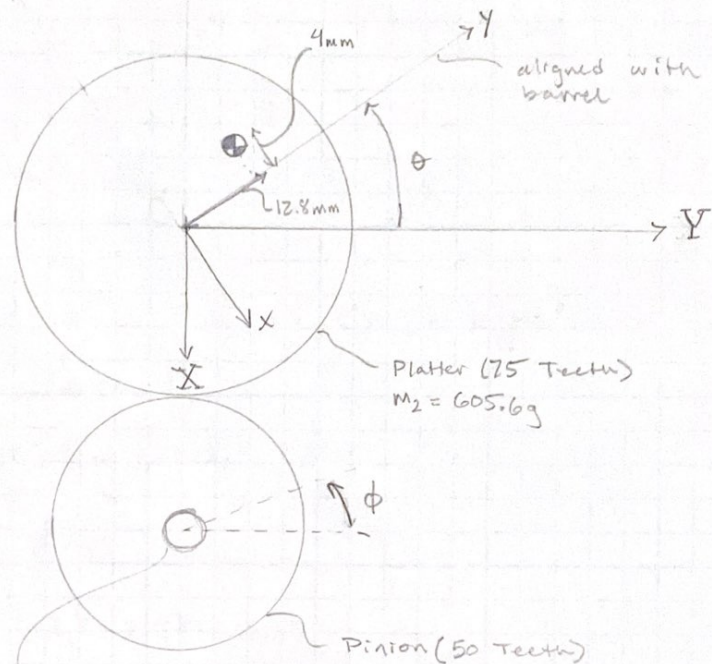 4mm
y
aligned with
barrel
θ
12.8mm
Y
x
X
Platter (75 Teeth)
m₂ = 605.6g
ϕ
Pinion (50 Teeth)